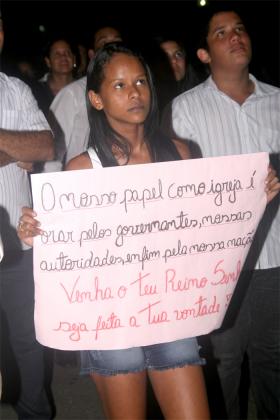 O nosso papel como igreja é
orar pelos governantes, nossas
autoridades, enfim pela nossa nação
Venha o teu Reino Senhor
seja feita a tua vontade